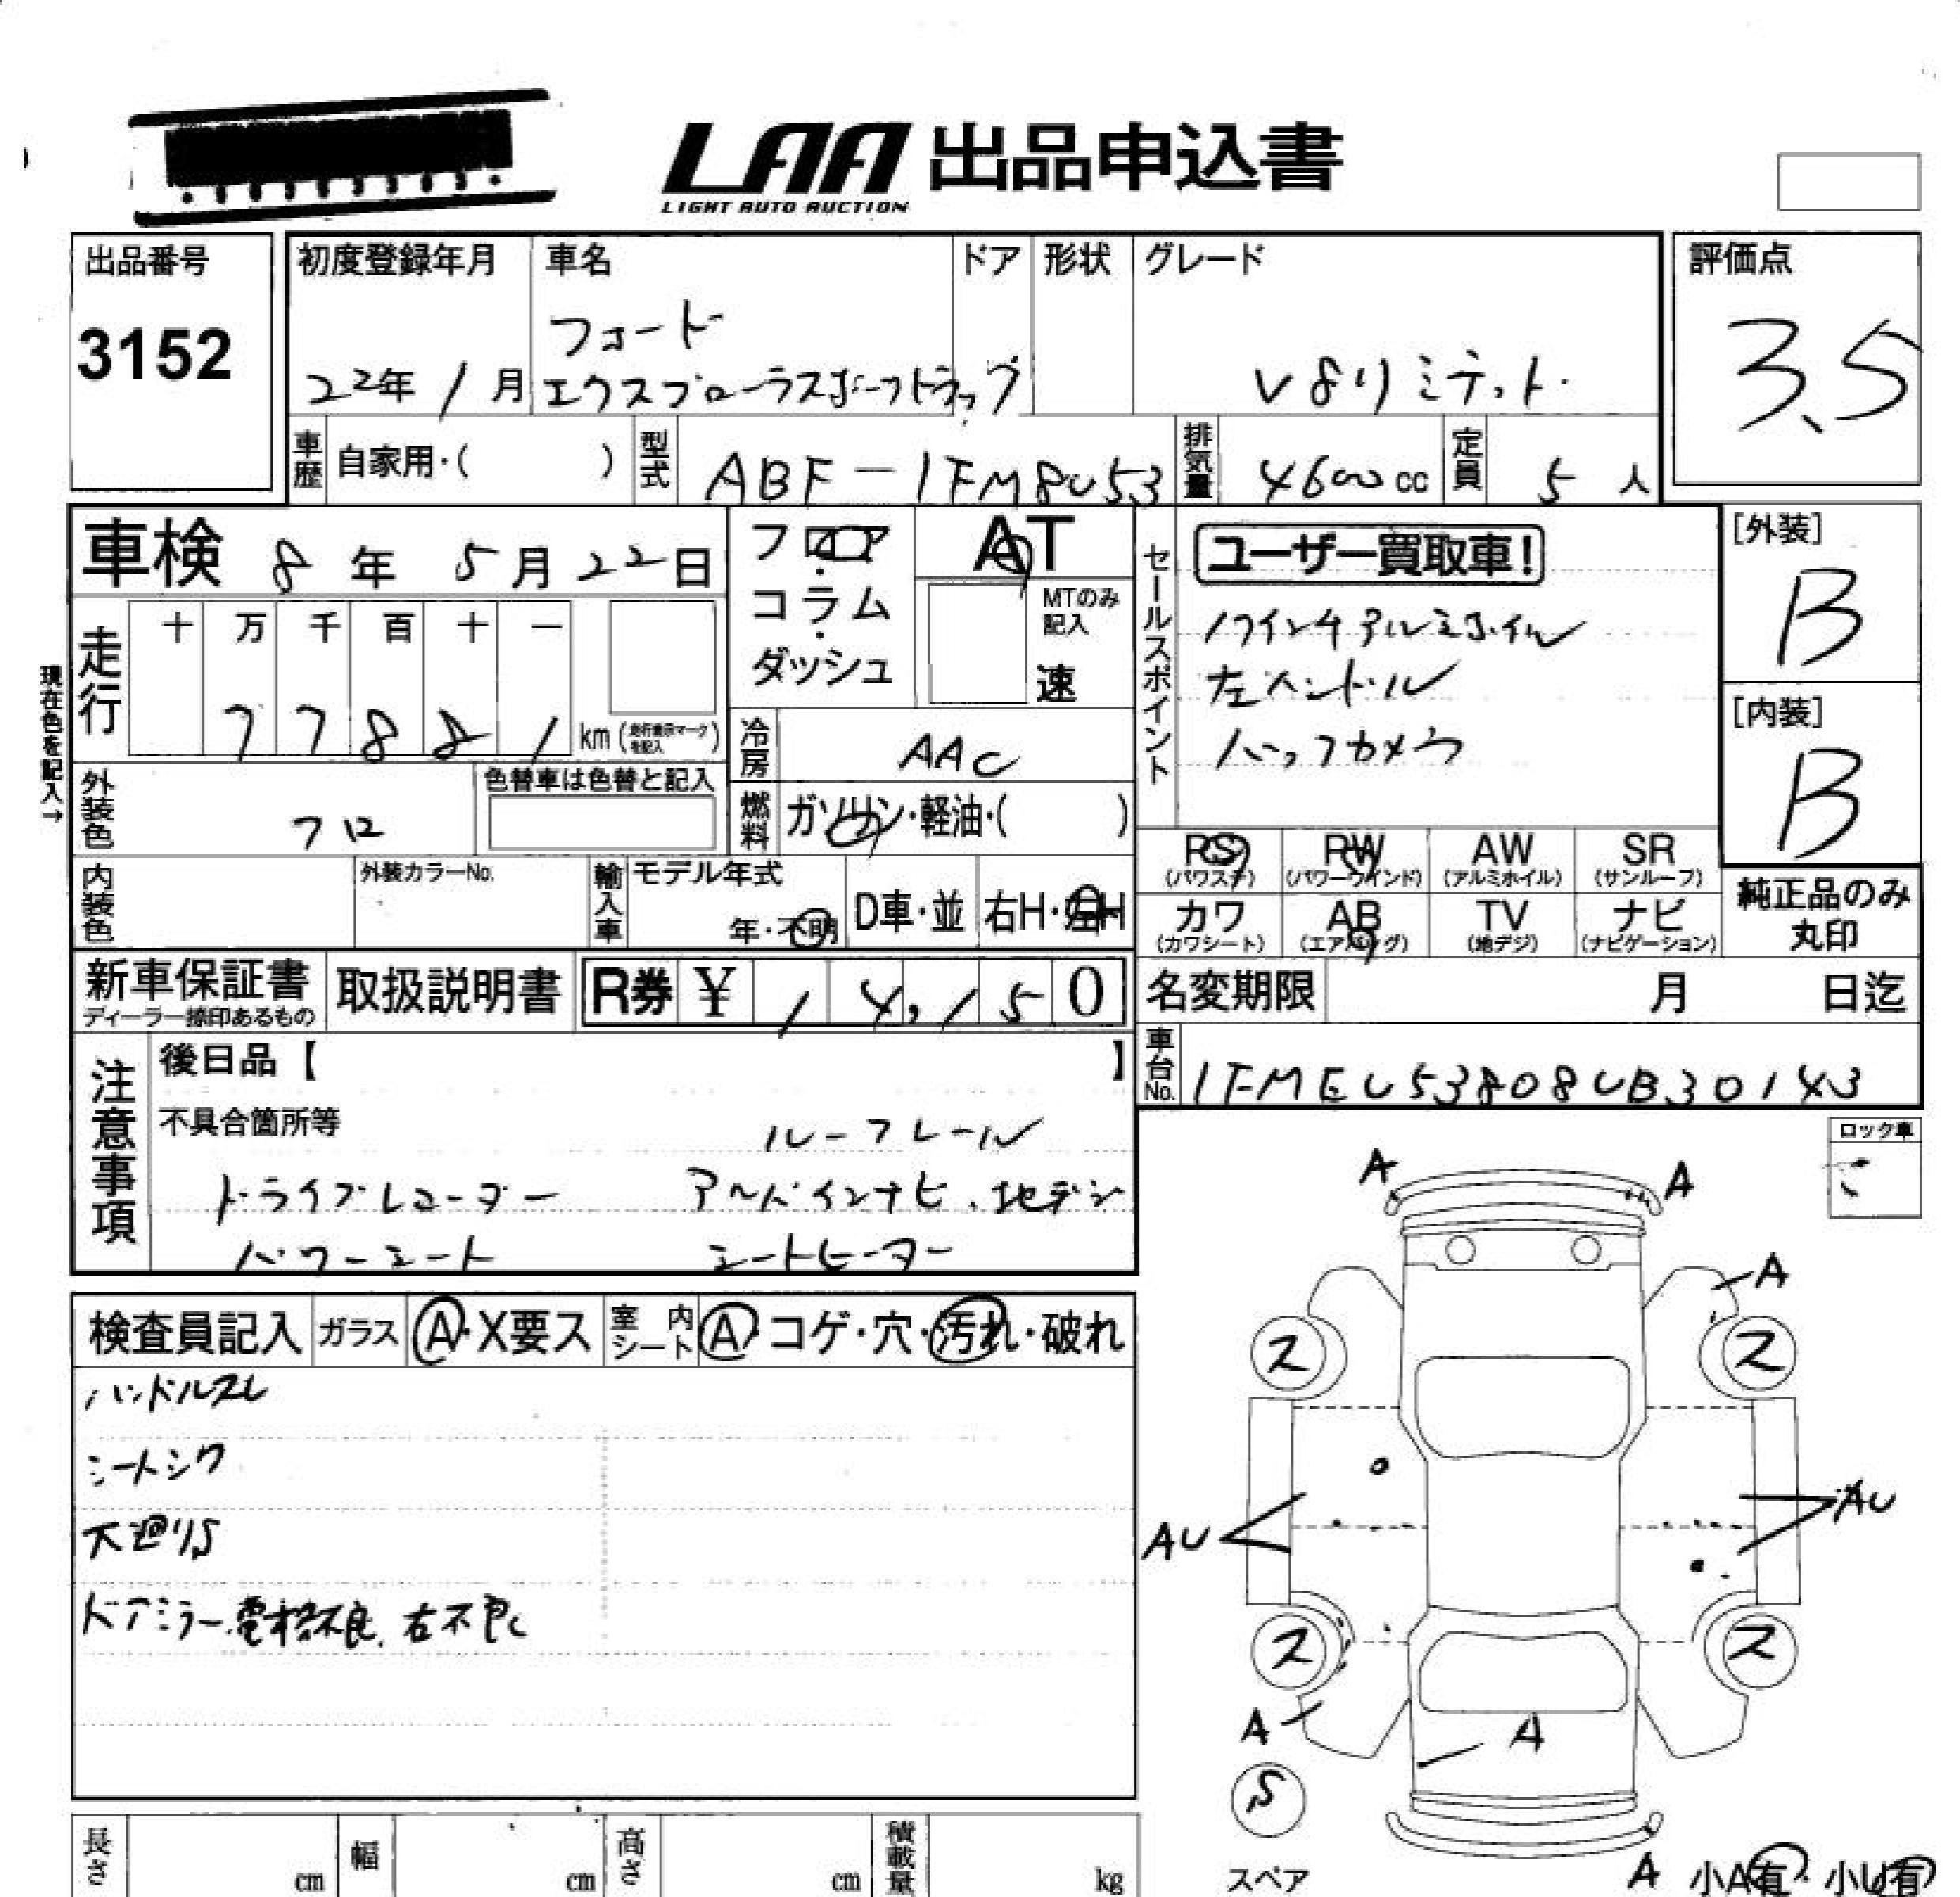 LAA 出品申込書
LIGHT AUTO AUCTION
出品番号
3152
初度登録年月
22年 1月
車名
フォード
エクスプローラスポーツトラック
ドア
形状
グレード
V8リミテット
評価点
3.5
車歴
自家用・( )
型式
ABF-1FM8U53
排気量
4600cc
定員
5人
車検 8年 5月 22日
フロア・コラム・ダッシュ
AT
MTのみ記入
速
セールスポイント
ユーザー買取車!
17インチアルミホイル
左ハンドル
バックカメラ
[外装]
B
[内装]
B
現在色を記入→
走行
十 万 千 百 十 一
7 7 8 8 1 km (走行表示マークを記入)
冷房
AAC
外装色
クロ
色替車は色替と記入
燃料
ガソリン・軽油・( )
RS (パワステ)
PW (パワーウインド)
AW (アルミホイル)
SR (サンルーフ)
内装色
外装カラーNo.
輸入車
モデル年式
年・不明
D車・並
右H・左H
カワ (カワシート)
AB (エアバッグ)
TV (地デジ)
ナビ (ナビゲーション)
純正品のみ丸印
新車保証書
ディーラー捺印あるもの
取扱説明書
R券 ¥ 14,150
名変期限 月 日迄
車台No.
1FMEU53808UB30143
注意事項
後日品【 】
不具合箇所等
ルーフレール
ドライブレコーダー アルパインナビ、地デジ
パワーシート シートヒーター
ロック車
検査員記入
ガラス
A・X要ス
室内シート
A・コゲ・穴・汚れ・破れ
ハンドルスレ
シートシワ
下廻りS
ドアミラー電格不良、右不良
A
A
A
ス
ス
AU
AU
ス
ス
A
A
S
スペア
A
小A有・小U有
長さ cm
幅 cm
高さ cm
積載量 kg